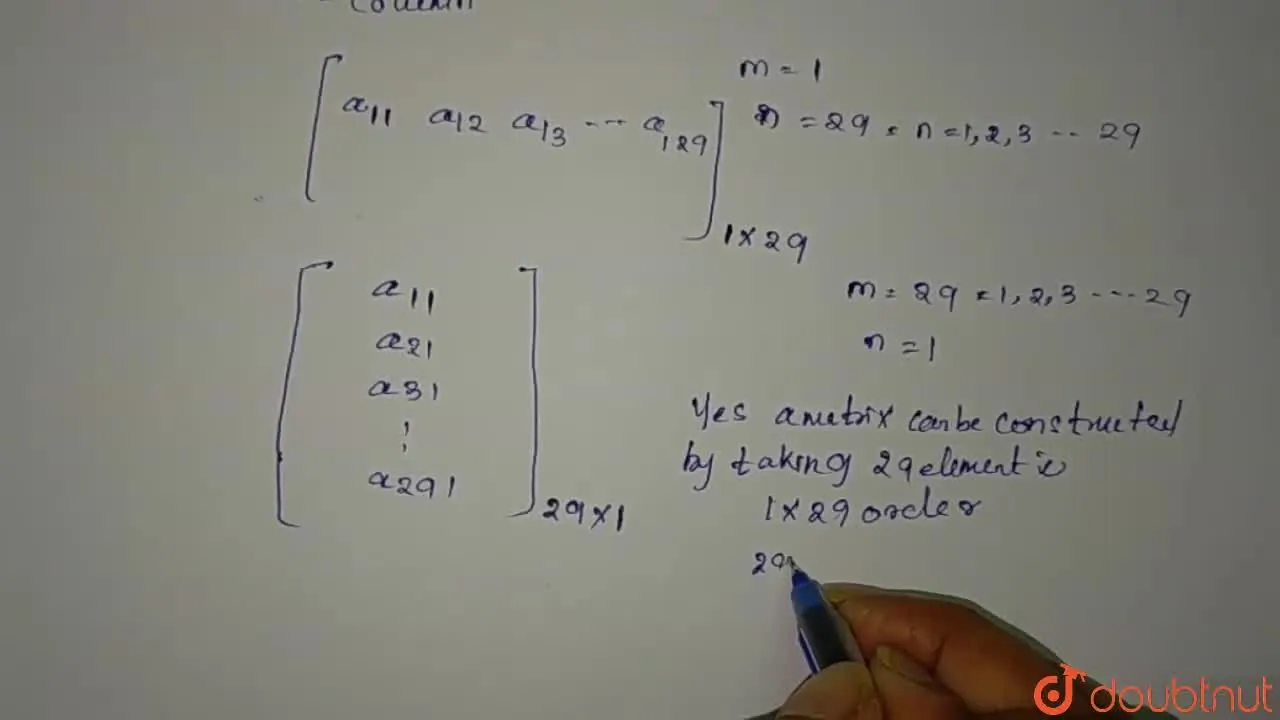 Column
a11 a12 a13 --- a129
1×29
m = 1
n = 29 = n=1,2,3 -- 29
a11
a21
a31
⋮
a291
29×1
m = 29 = 1,2,3 --- 29
n = 1
Yes a matrix can be constructed
by taking 29 element is
1×29 order
29
doubtnut